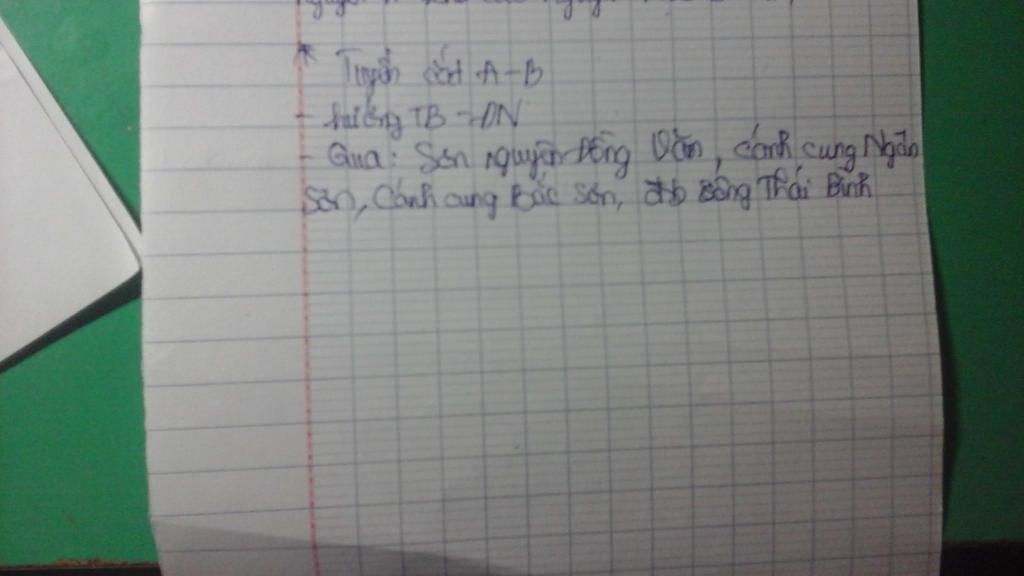 * Tuyến cắt A-B
- hướng TB - DN
- Qua: Sơn nguyên Đồng Văn, cánh cung Ngân
Sơn, Cánh cung Bắc Sơn, đb sông Thái Bình